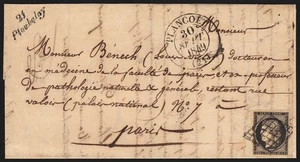 21
Plancoët
PLANCOËT
30
1849
Monsieur
Monsieur Bénech (Louis                ) docteur
en médecine de la faculté de paris et ex professeur
de pathologie naturelle & générale, restant rue
valois (palais national) N.° 7
paris